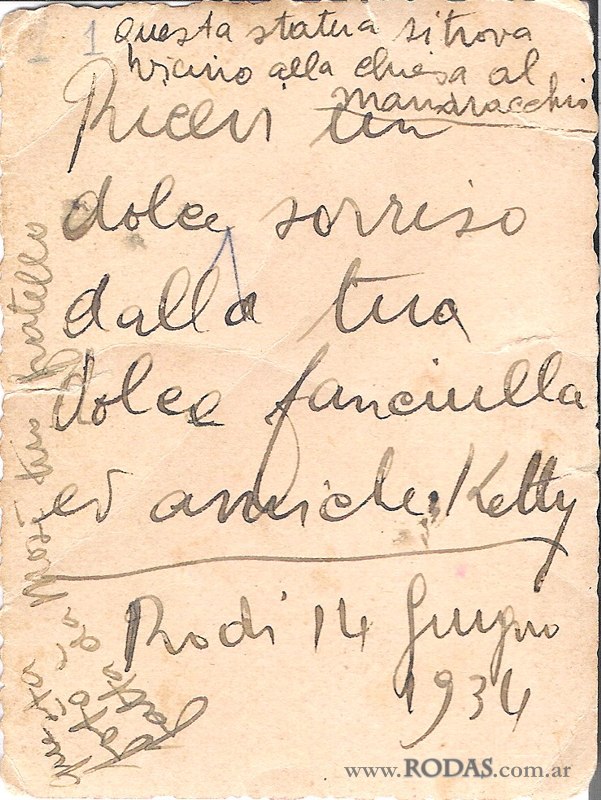 1 questa statua si trova
vicino alla chiesa al
Mandracchio
Ricevi un
dolce sorriso
dalla tua
dolce fanciulla
ed amiche: Ketty
Rodi 14 Giugno
1934
Questa foto è fatta da Mosè tuo fratello
www.RODAS.com.ar